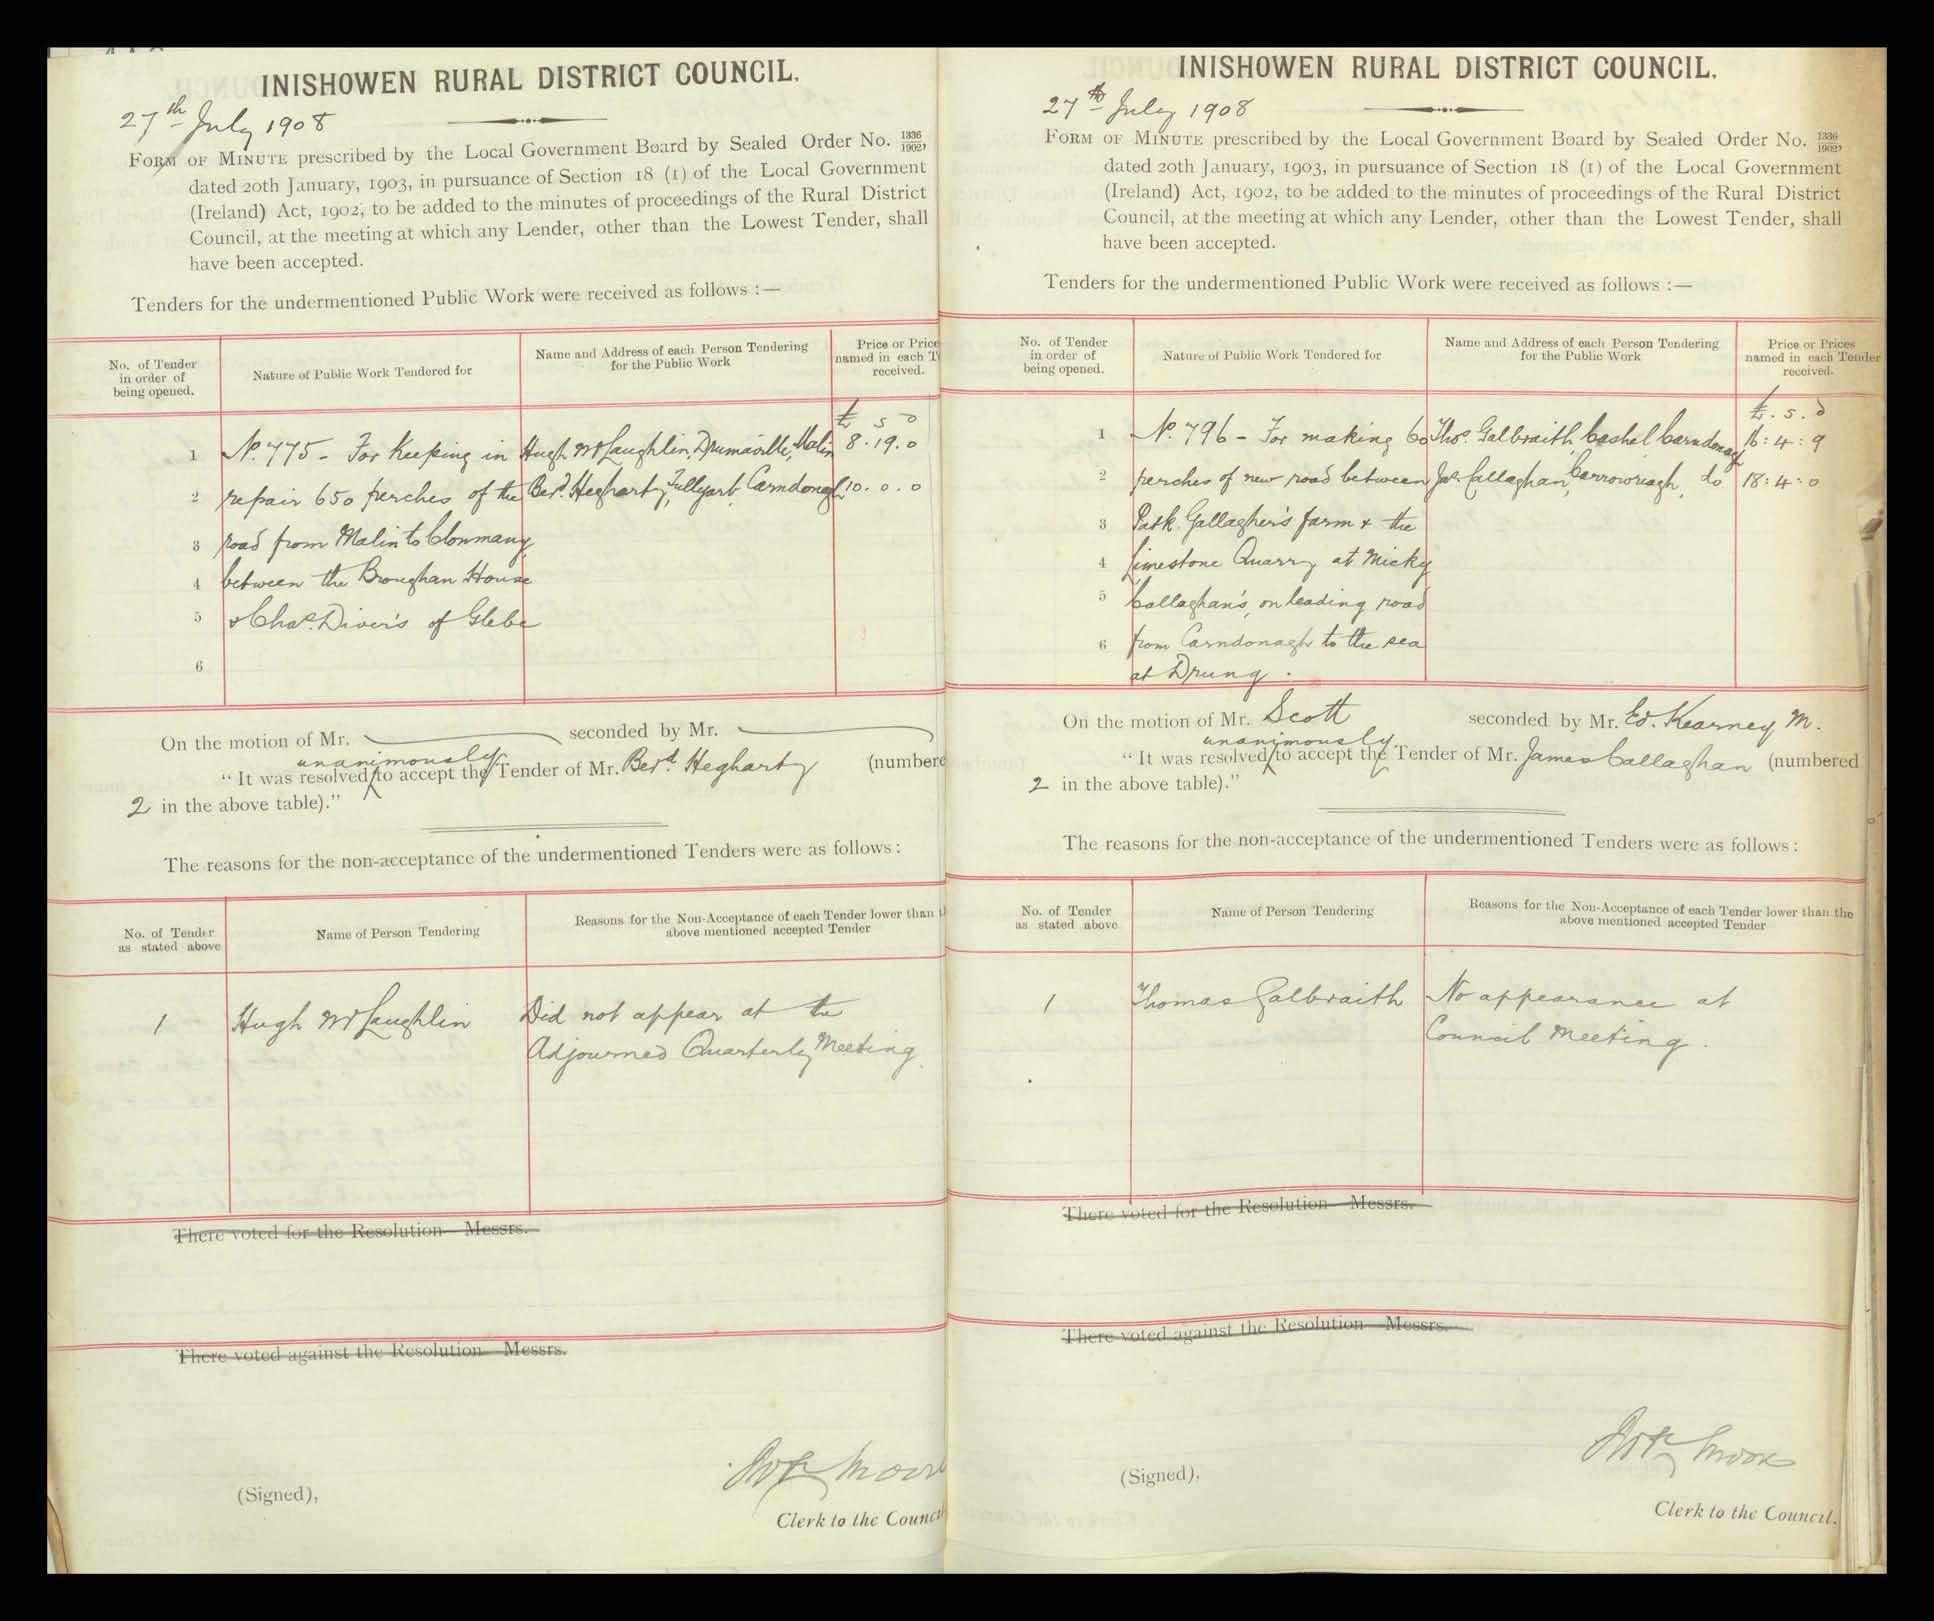 INISHOWEN RURAL DISTRICT COUNCIL.
27th July 1908
FORM OF MINUTE prescribed by the Local Government Board by Sealed Order No. 1336/1902,
dated 20th January, 1903, in pursuance of Section 18 (1) of the Local Government
(Ireland) Act, 1902, to be added to the minutes of proceedings of the Rural District
Council, at the meeting at which any Lender, other than the Lowest Tender, shall
have been accepted.
Tenders for the undermentioned Public Work were received as follows :—
No. of Tender
in order of
being opened.
Nature of Public Work Tendered for
Name and Address of each Person Tendering
for the Public Work
Price or Price
named in each T
received.
£ s d
1 No. 775 - For Keeping in Hugh McLaughlin, Drumaville, Malin 8 . 19 . 0
2 repair 650 perches of the Berd. Hegharty, Tullyart, Carndonagh 10 . 0 . 0
3 road from Malin to Clonmany
4 between the Broughan House
5 & Chas. Diver's of Glebe
6
On the motion of Mr. seconded by Mr.
unanimously
"It was resolved to accept the Tender of Mr. Berd. Hegharty (numbere
2 in the above table)."
The reasons for the non-acceptance of the undermentioned Tenders were as follows :
No. of Tender
as stated above
Name of Person Tendering
Reasons for the Non-Acceptance of each Tender lower than t
above mentioned accepted Tender
1 Hugh McLaughlin Did not appear at the
Adjourned Quarterly Meeting.
There voted for the Resolution—Messrs.
There voted against the Resolution—Messrs.
(Signed),
Clerk to the Council
INISHOWEN RURAL DISTRICT COUNCIL.
27th July 1908
FORM OF MINUTE prescribed by the Local Government Board by Sealed Order No. 1336/1902,
dated 20th January, 1903, in pursuance of Section 18 (1) of the Local Government
(Ireland) Act, 1902, to be added to the minutes of proceedings of the Rural District
Council, at the meeting at which any Lender, other than the Lowest Tender, shall
have been accepted.
Tenders for the undermentioned Public Work were received as follows :—
No. of Tender
in order of
being opened.
Nature of Public Work Tendered for
Name and Address of each Person Tendering
for the Public Work
Price or Prices
named in each Tender
received.
£ . s . d
1 No. 796 - For making 60 Thos. Galbraith, Cashel Carndonagh 16 : 4 : 9
2 perches of new road between Jas. Callaghan, Carrowreagh, do 18 : 4 : 0
3 Patk. Gallagher's farm & the
4 limestone Quarry at Micky
5 Callaghan's, on leading road
6 from Carndonagh to the sea
at Drung.
On the motion of Mr. Scott seconded by Mr. Ed. Kearney M.
unanimously
"It was resolved to accept the Tender of Mr. James Callaghan (numbered
2 in the above table)."
The reasons for the non-acceptance of the undermentioned Tenders were as follows :
No. of Tender
as stated above
Name of Person Tendering
Reasons for the Non-Acceptance of each Tender lower than the
above mentioned accepted Tender
1 Thomas Galbraith No appearance at
Council Meeting.
There voted for the Resolution—Messrs.
There voted against the Resolution—Messrs.
(Signed),
Clerk to the Council.